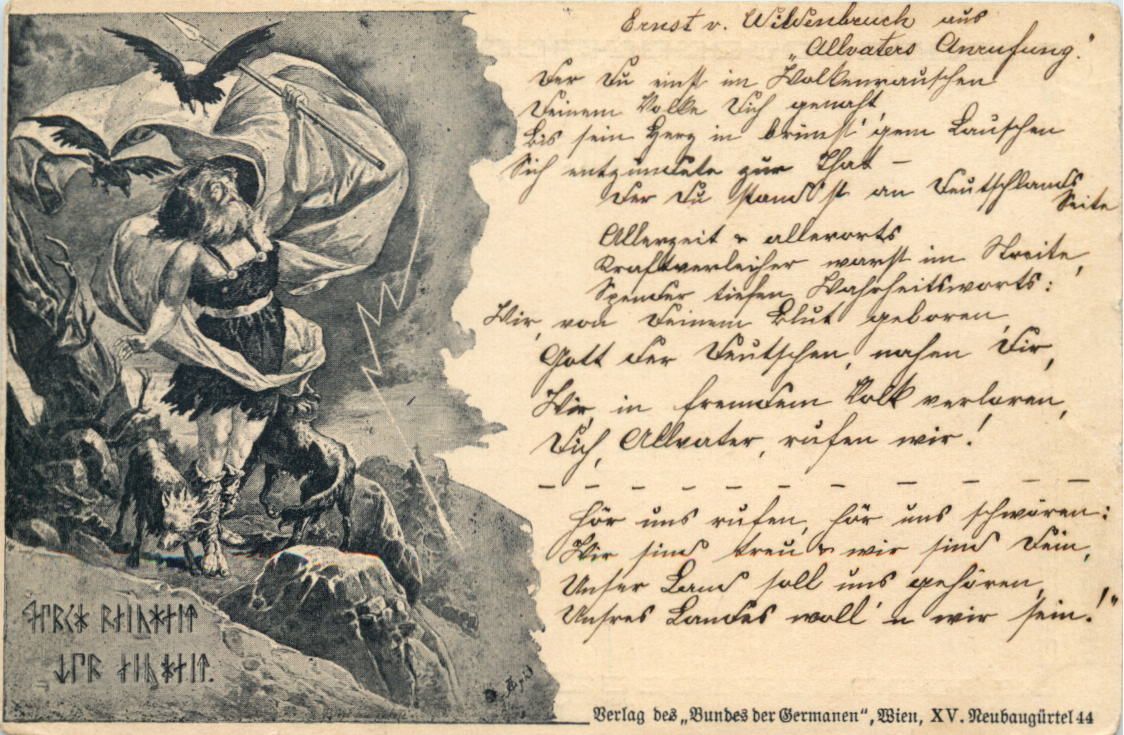 Ernst v. Wildenbruch aus
"Allvaters Anrufung."
Der Du einst im Wolkenrauschen
Deinem Volke Dich genaht,
Bis sein Herz in brünst'gem Lauschen
Sich entzündete zur That –
Der Du stand'st an Deutschlands
Seite
Allerzeit & allerorts
Kraftverleiher warst im Streite,
Spender tiefen Wahrheitsworts:
Wir, von Deinem Blut geboren,
Gott der Deutschen, nahen Dir,
Wir, in fremdem Volk verloren,
Dich, Allvater, rufen wir!
Hör uns rufen, hör uns schwören:
Wir sind treu & wir sind Dein,
Unser Land soll uns gehören,
Unsres Landes woll'n wir sein!"
Verlag des „Bundes der Germanen", Wien, XV. Neubaugürtel 44